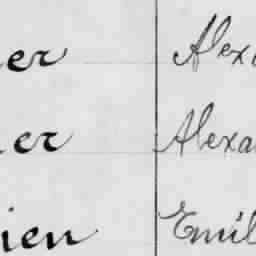 er Alex
er Alexa
ien Emil